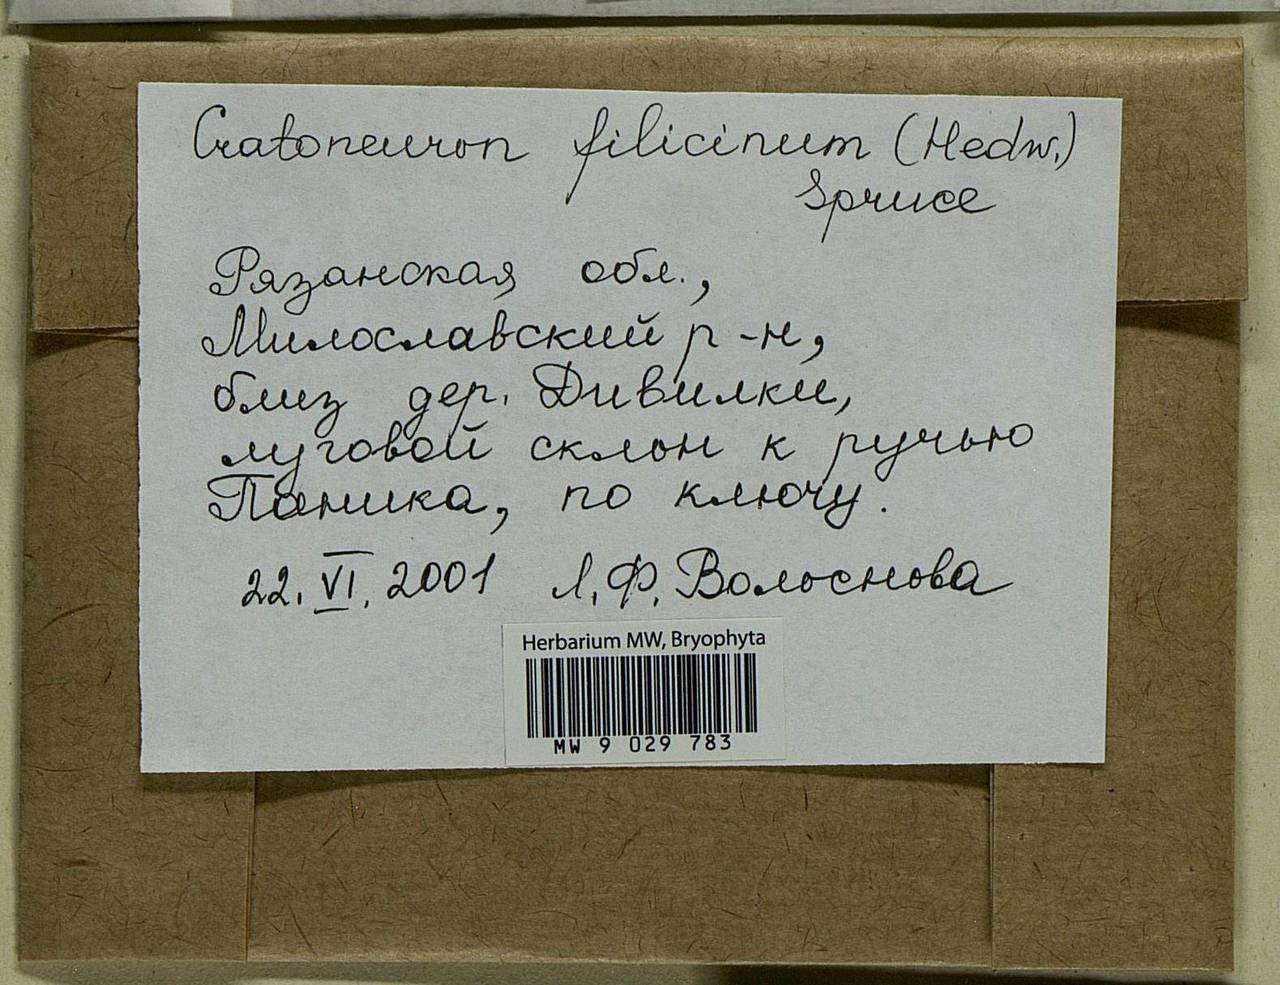 Cratoneuron filicinum (Hedw.)
Spruce
Рязанская обл.,
Милославский р-н,
близ дер. Дивилки,
луговой склон к ручью
Паника, по ключу.
22.VI.2001 Л.Ф. Волоснова
Herbarium MW, Bryophyta
MW 9 029 783